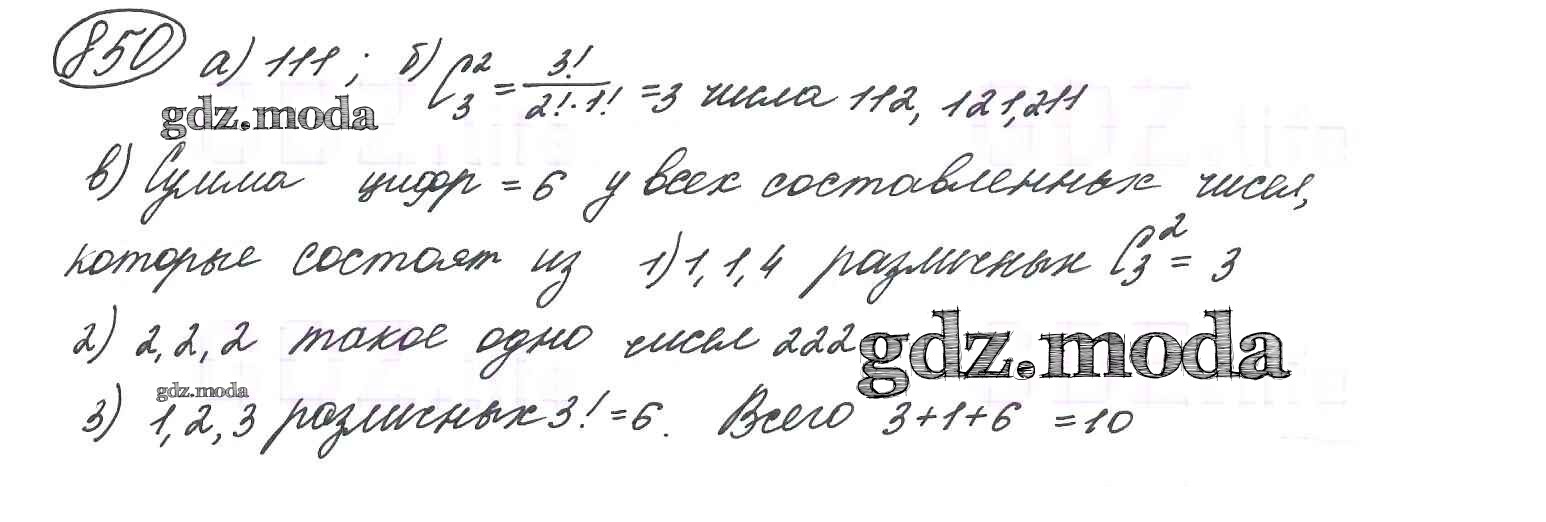 850 а) 111 ; б) C₃² = 3!/(2!·1!) = 3 числа 112, 121, 211
gdz.moda
в) Сумма цифр = 6 у всех составленных чисел,
которые состоят из 1) 1, 1, 4 различных C₃² = 3
2) 2, 2, 2 такое одно чисел 222
gdz.moda
gdz.moda
3) 1, 2, 3 различных 3! = 6. Всего 3+1+6 = 10